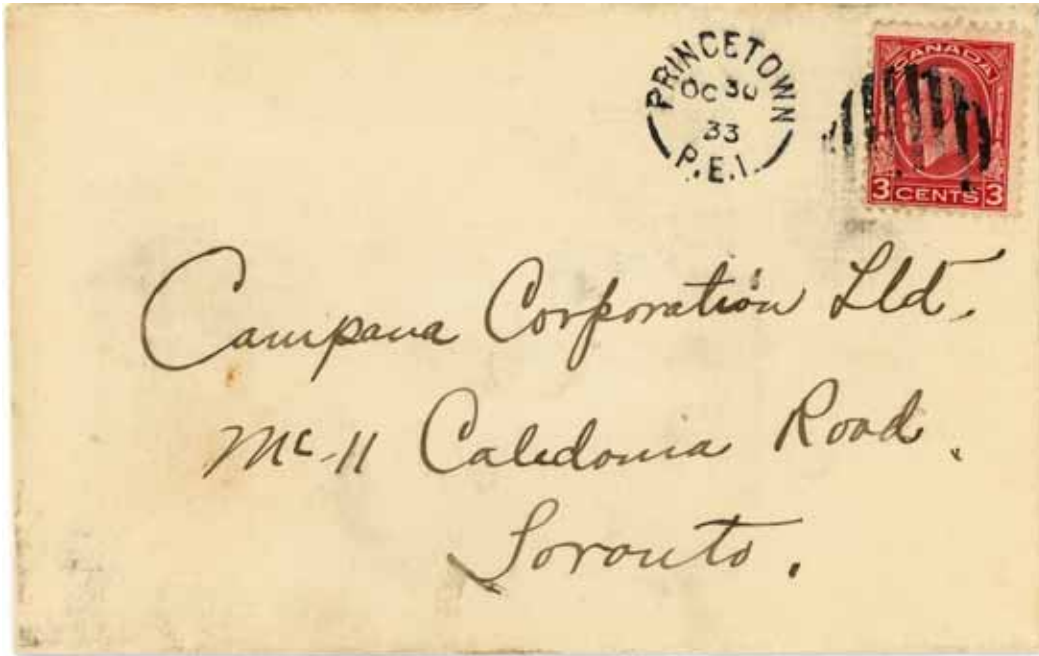 PRINCETOWN
OC 30
33
P.E.I.
CANADA
3 CENTS 3
Campana Corporation Ltd.
Mc-11 Caledonia Road.
Toronto.